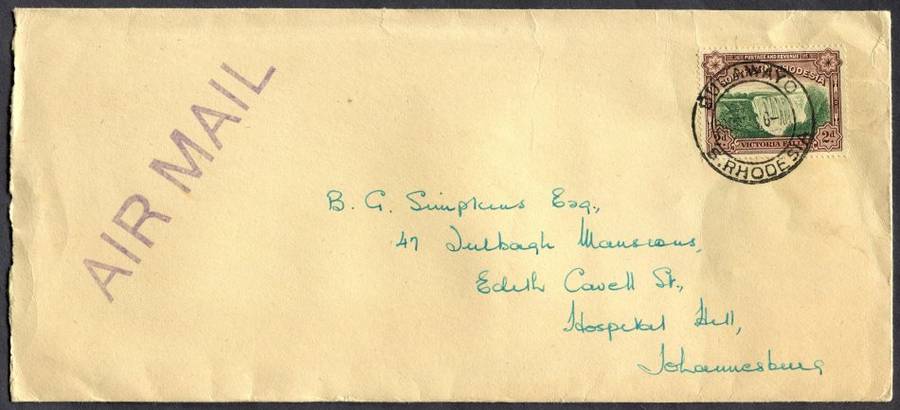 AIR MAIL
POSTAGE AND REVENUE
RHODESIA
BULAWAYO
VICTORIA FALLS
2d
S. RHODESIA
B. G. Simpkins Esq.,
47 Tulbagh Mansions,
Edith Cavell St.,
Hospital Hill,
Johannesburg